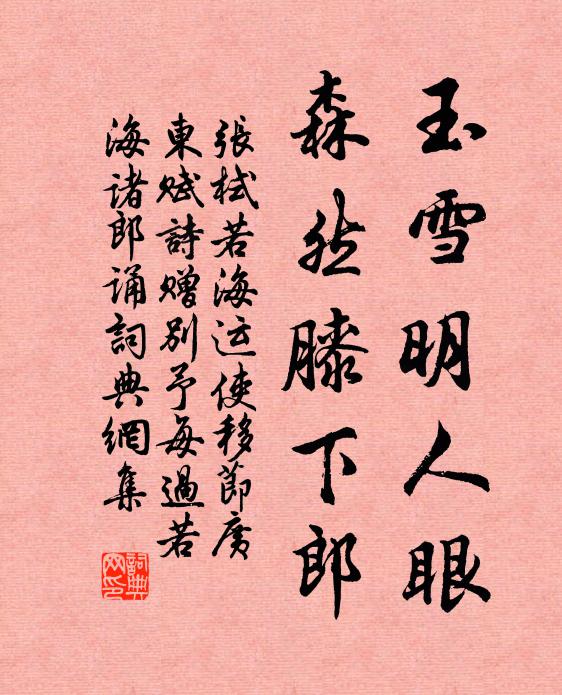 玉雪明人眼
森然膝下郎
張栻若海运使移節廣
東赋詩赠别予每過若
海诸郎诵詞典網集
詞典网印